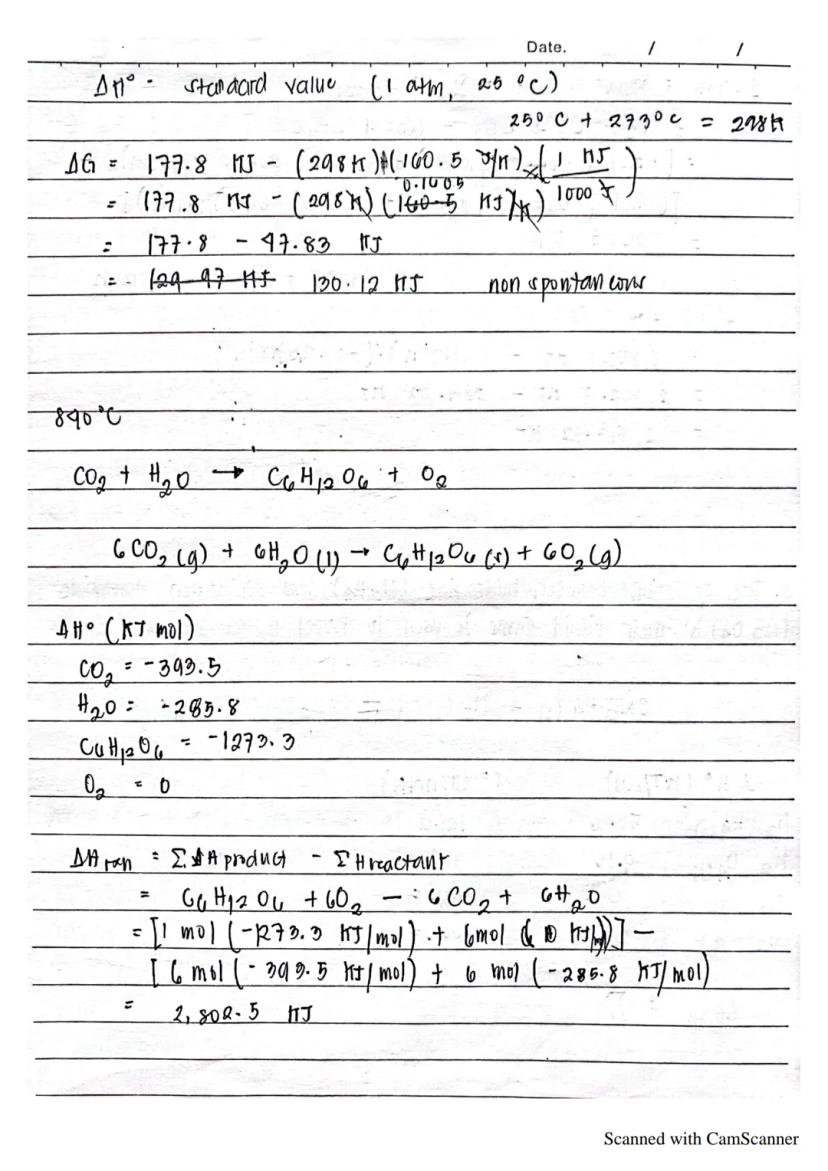 Date. / /
ΔH° - standard value (1 atm, 25 °C)
25° C + 273° C = 298 K
ΔG = 177.8 KJ - (298K) (160.5 J/K) x (1 KJ / 1000 J)
= 177.8 KJ - (298 K) (160.5 0.1605 KJ/K)
= 177.8 - 47.83 KJ
= 129.97 KJ 130.12 KJ non spontaneous
840 °C
CO₂ + H₂O → C₆H₁₂O₆ + O₂
6CO₂ (g) + 6H₂O (l) → C₆H₁₂O₆ (s) + 6O₂ (g)
ΔH° (KJ mol)
CO₂ = -393.5
H₂O = -285.8
C₆H₁₂O₆ = -1273.3
O₂ = 0
ΔH rxn = Σ ΔH product - Σ H reactant
= C₆H₁₂O₆ + 6O₂ — 6CO₂ + 6H₂O
= [1 mol (-1273.3 KJ/mol) + 6mol (0 KJ/mol)] —
[6 mol (-393.5 KJ/mol) + 6 mol (-285.8 KJ/mol)
= 2,802.5 KJ
Scanned with CamScanner